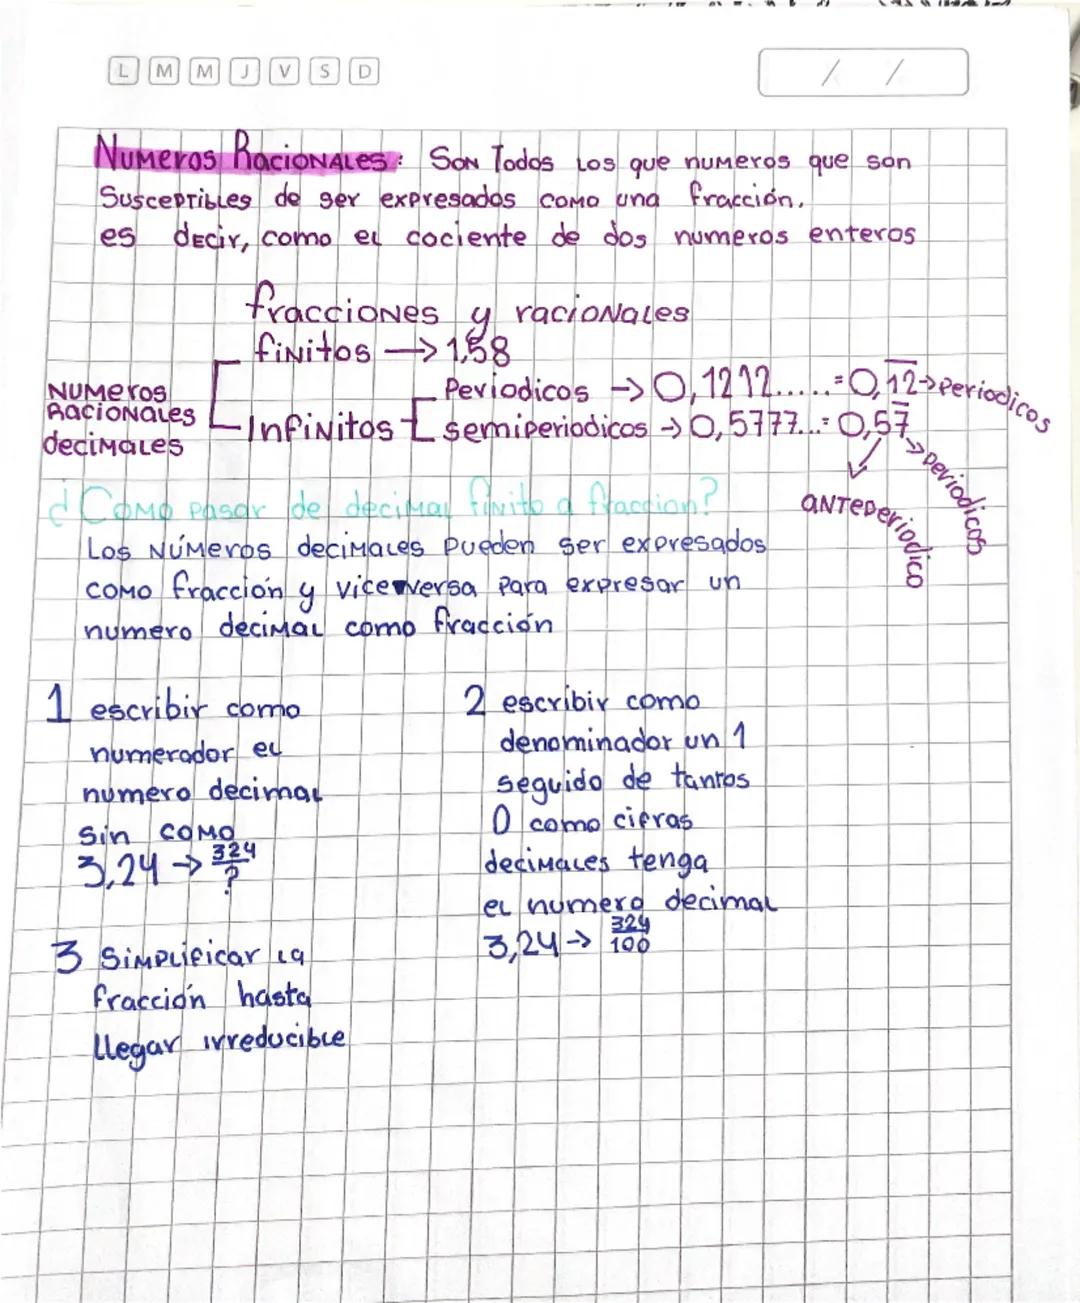 L M M J V S D
/ /
Numeros Racionales: Son Todos los que numeros que son
Susceptibles de ser expresados como una fracción.
es decir, como el cociente de dos numeros enteros
fracciones y racionales
finitos → 1,58
Numeros Racionales decimales
Periodicos → 0,1212......=0,1̅2̅ → periodicos
Infinitos
semiperiodicos → 0,5777...= 0,57̅ → periodicos
anteperiodico
¿Como pasar de decimal finito a fraccion?
Los números decimales pueden ser expresados
como fracción y viceversa para expresar un
numero decimal como fracción
1 escribir como
numerador el
numero decimal
sin como
3,24 → 324/?
2 escribir como
denominador un 1
seguido de tantos
0 como cifras
decimales tenga
el numero decimal
3,24 → 324/100
3 Simplificar la
fracción hasta
llegar irreducible